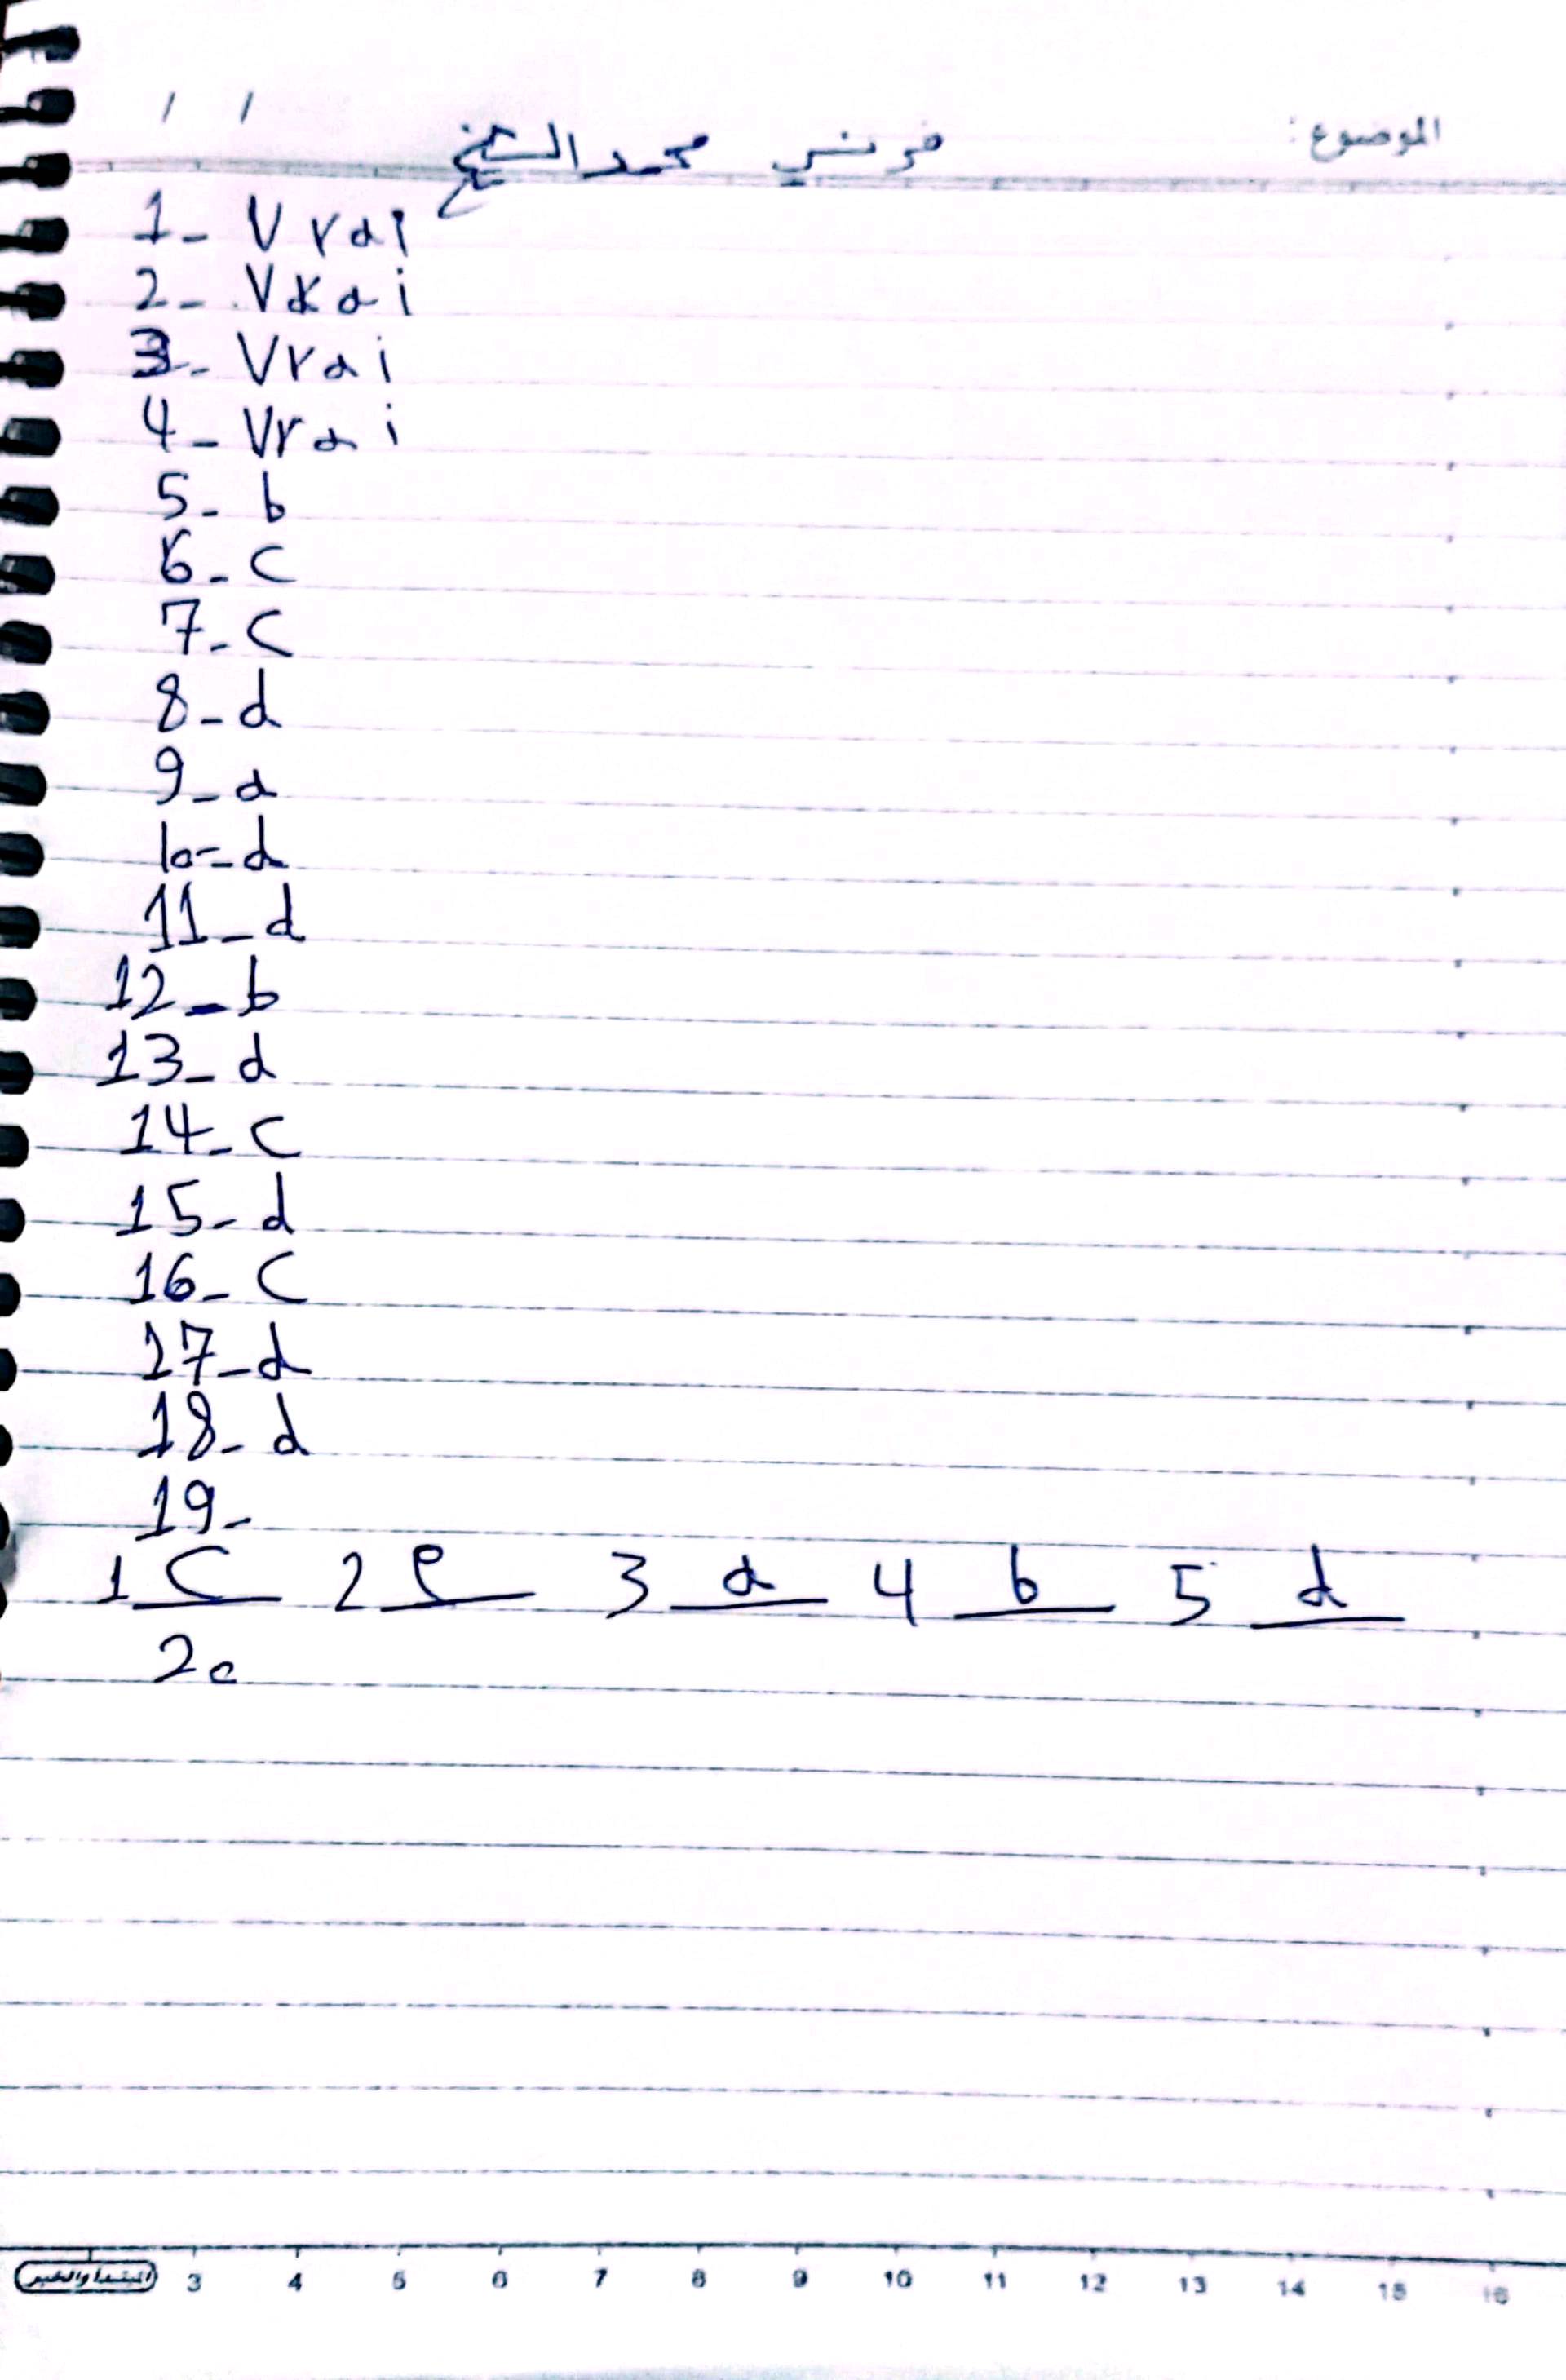 الموضوع: فرنسي محمد الشيخ / /
1- Vrai
2- Vrai
3- Vrai
4- Vrai
5- b
6- C
7- C
8- d
9- a
10- d
11- d
12- b
13- d
14- C
15- d
16- C
17- d
18- d
19-
1 C 2 e 3 a 4 b 5 d
20
المبتدأ والخبر 3 4 5 6 7 8 9 10 11 12 13 14 15 16